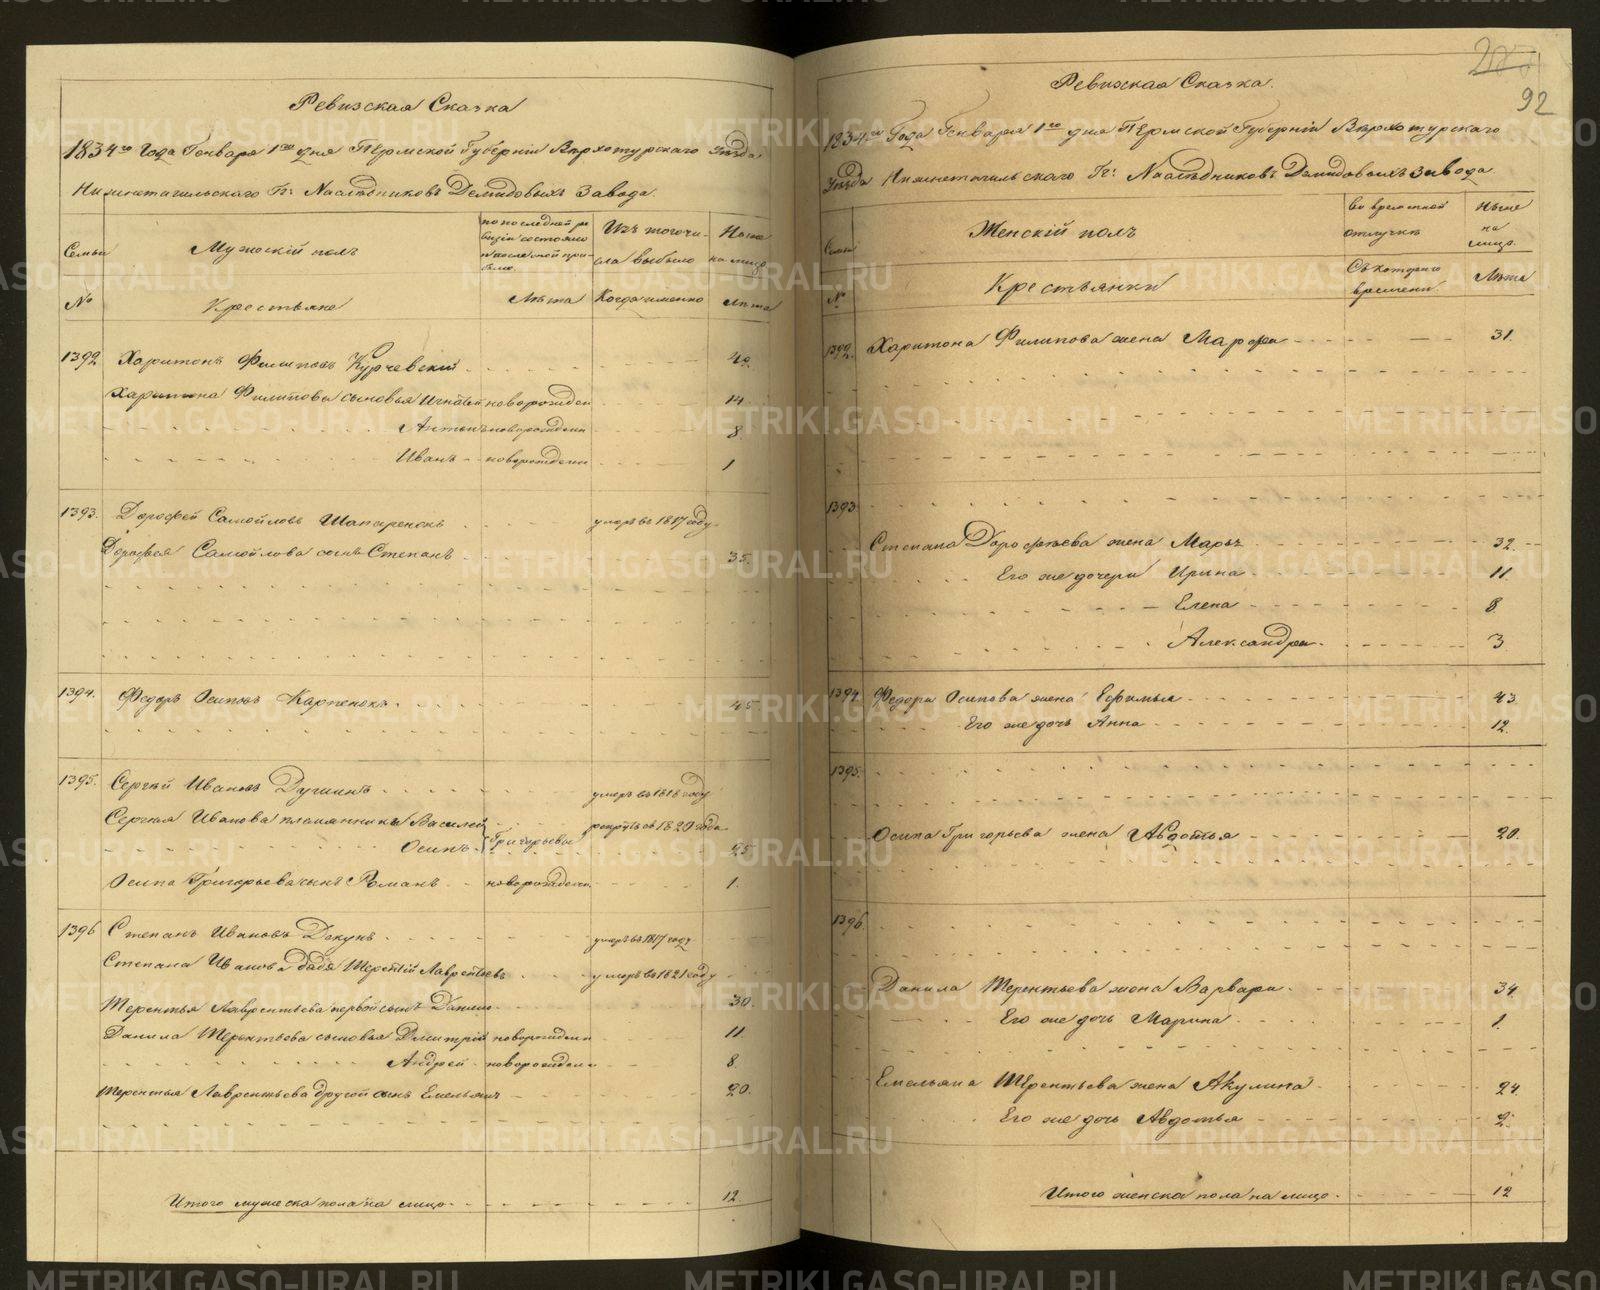 Ревизская Сказка
1834го Года Генваря 1го дня Пермской Губернiи Верхотурскаго Уѣзда
Нижнетагильскаго Гг: Наслѣдниковъ Демидовыхъ Завода.
Семьи
Мужескiй полъ
по последней ревизiи состояло и после той прибыло.
Изъ того числа выбыло
Ныне на лицо
№
Крестьяне
Лѣта
Когда именно
Лѣта
1392 Харитонъ Филиповъ Курчевскiй 49.
Харитона Филипова сыновья Игнатей новорожден 14
Антонъ новорожденн 8.
Иванъ новорожденн 1
1393. Дорофей Самойловъ Шапаренокъ умеръ въ 1817 году.
Дорофея Самойлова сынъ Степанъ 35.
1394. Федоръ Осиповъ Карпенокъ. 45
1395. Сергѣй Ивановъ Душинъ умеръ въ 1818 году
Сергѣя Иванова племянники Василей рекрутъ съ 1820 года
Осипъ Григорьевы 25
Осипа Григорьева сынъ Романъ новорожденн. 1.
1396 Степанъ Ивановъ Декунъ умеръ въ 1817 году
Степана Иванова дядя Терентiй Лаврентьевъ умеръ въ 1821 году
Терентья Лаврентьева первой сынъ Данило 30.
Данила Терентьева сыновья Дмитрiй новорожденн 11.
Андрей новорожденн 8.
Терентья Лаврентьева другой сынъ Емельянъ 20.
Итого мужеска пола на лицо 12.
92
Ревизская Сказка.
1834го Года Генваря 1го дня Пермской Губернiи Верхотурскаго
Уѣзда Нижнетагильскаго Гг: Наслѣдниковъ Демидовыхъ завода
Семьи
Женскiй полъ
Во временной отлучкѣ
Ныне на лицо.
№
Крестьянки
Съ котораго времени
Лѣта
1392. Харитона Филипова жена Марфа 31.
1393
Степана Дорофѣева жена Марья 32.
Его же дочери Ирина 11.
Елена 8.
Александра. 3
1394. Федора Осипова жена Ефимья 43.
Его же дочь Анна 12.
1395.
Осипа Григорьева жена Авдотья 20.
1396.
Данила Терентьева жена Варвара. 34.
Его же дочь Марина 1.
Емельяна Терентьева жена Акулина 24.
Его же дочь Авдотья 2.
Итого женска пола на лицо. 12
METRIKI.GASO-URAL.RU